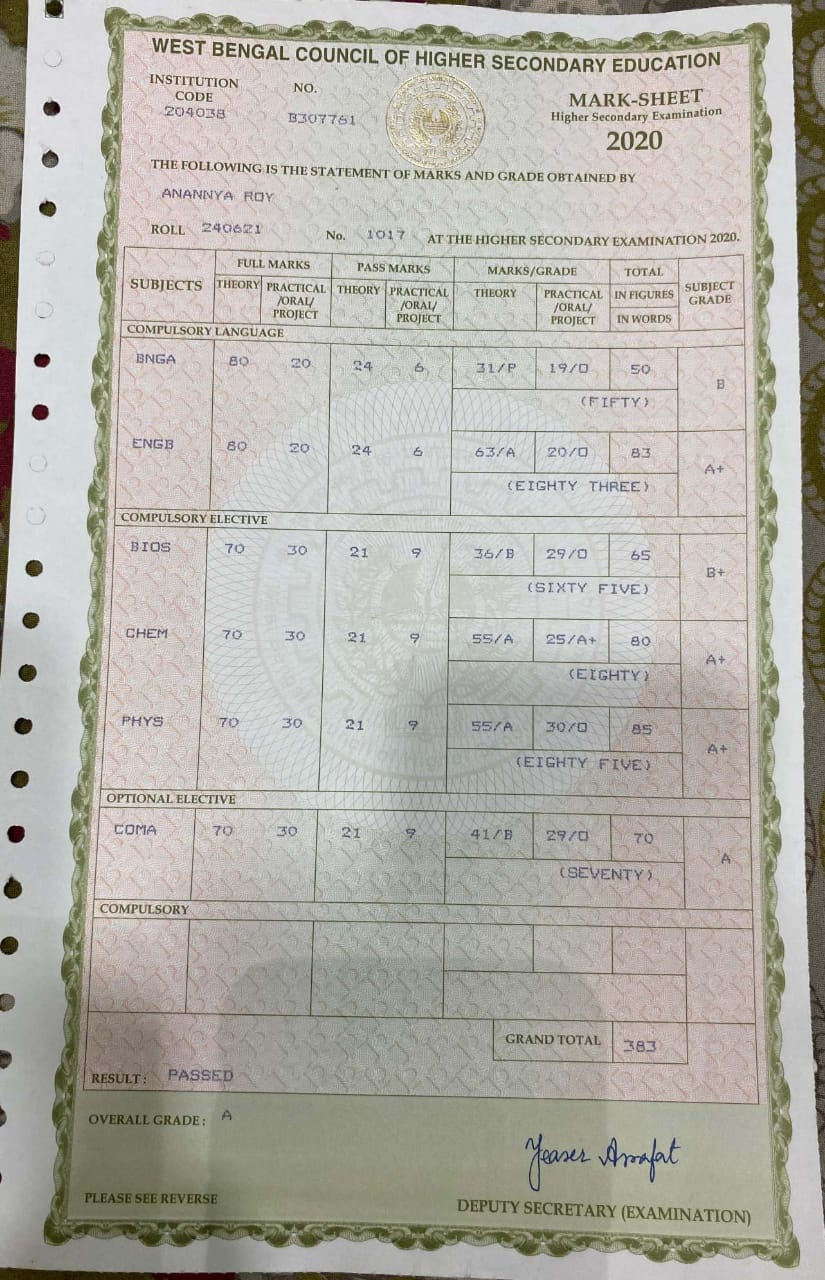 WEST BENGAL COUNCIL OF HIGHER SECONDARY EDUCATION
INSTITUTION CODE NO. MARK-SHEET
204038 B307761 Higher Secondary Examination
2020
THE FOLLOWING IS THE STATEMENT OF MARKS AND GRADE OBTAINED BY
ANANNYA ROY
ROLL 240621 No. 1017 AT THE HIGHER SECONDARY EXAMINATION 2020.
SUBJECTS FULL MARKS PASS MARKS MARKS/GRADE TOTAL SUBJECT GRADE
THEORY PRACTICAL /ORAL/ PROJECT THEORY PRACTICAL /ORAL/ PROJECT THEORY PRACTICAL /ORAL/ PROJECT IN FIGURES
IN WORDS
COMPULSORY LANGUAGE
BNGA 80 20 24 6 31/P 19/O 50 B
(FIFTY)
ENGB 80 20 24 6 63/A 20/O 83 A+
(EIGHTY THREE)
COMPULSORY ELECTIVE
BIOS 70 30 21 9 36/B 29/O 65 B+
(SIXTY FIVE)
CHEM 70 30 21 9 55/A 25/A+ 80 A+
(EIGHTY)
PHYS 70 30 21 9 55/A 30/O 85 A+
(EIGHTY FIVE)
OPTIONAL ELECTIVE
COMA 70 30 21 9 41/B 29/O 70 A
(SEVENTY)
COMPULSORY
GRAND TOTAL 383
RESULT : PASSED
OVERALL GRADE : A
Yeaser Arrafat
PLEASE SEE REVERSE DEPUTY SECRETARY (EXAMINATION)